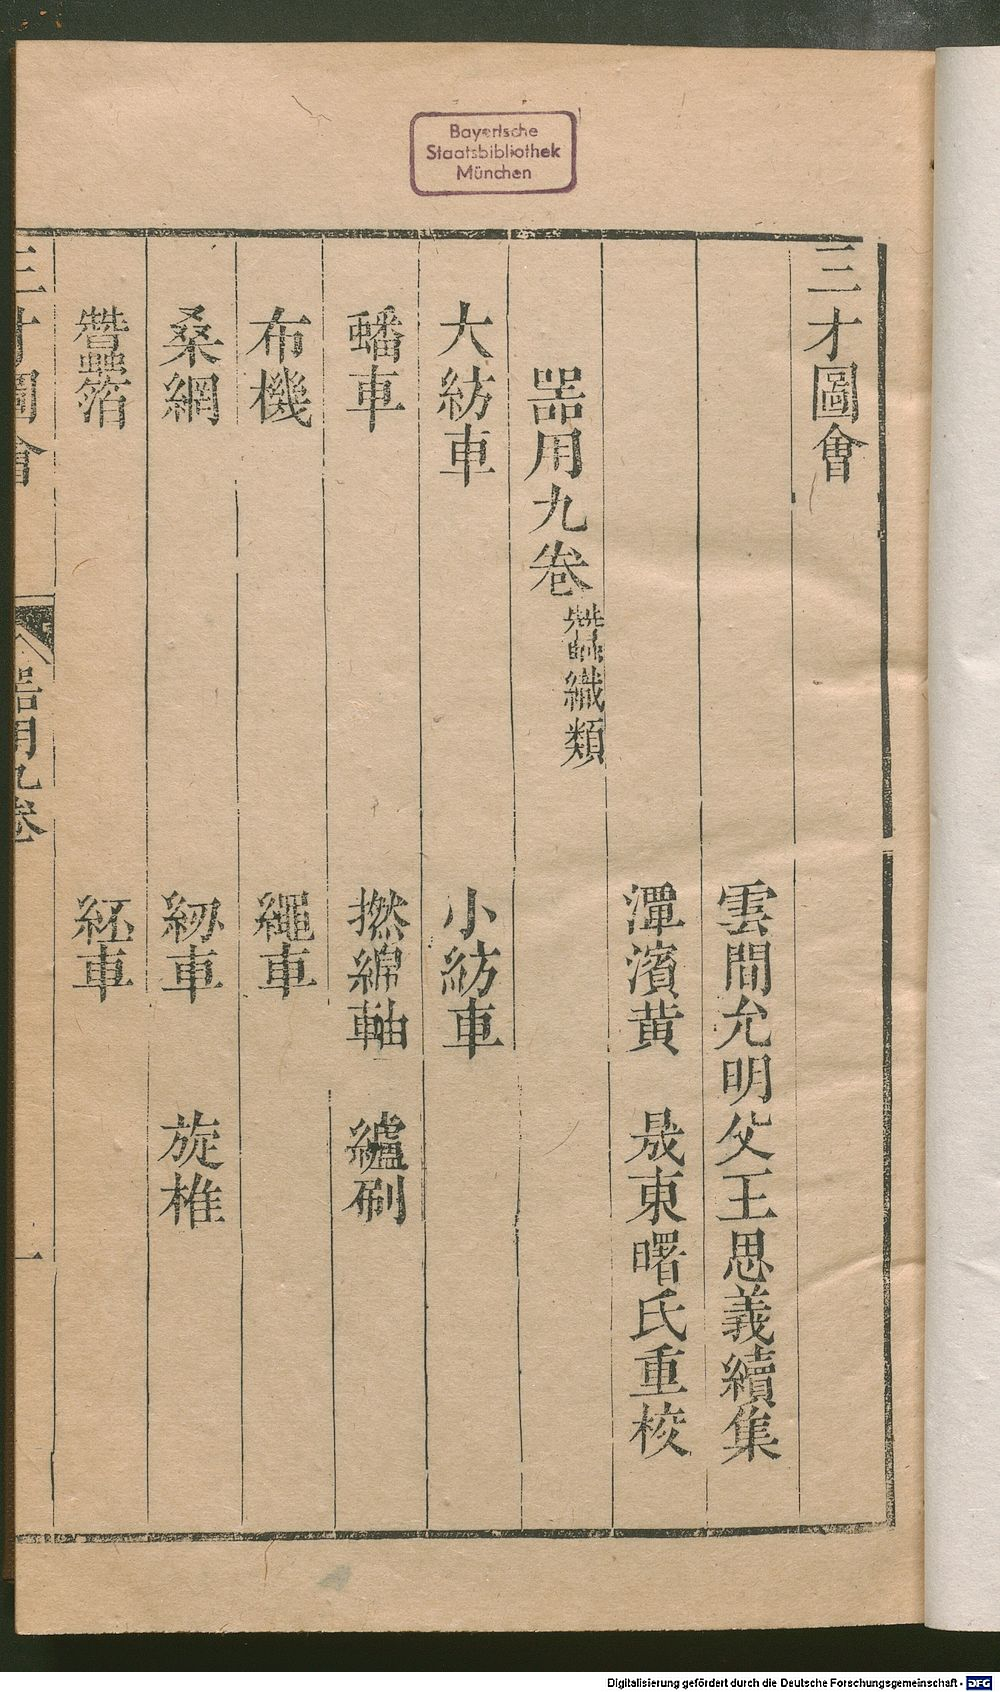 Bayerische
Staatsbibliothek
München
三才圖會
雲間允明父王思義續集
潭濱黃　晟東曙氏重校
器用九卷 蠶織類
大紡車　小紡車
蟠車　撚綿軸　纑刷
布機　繩車
桑網　紉車　旋椎
蠶箔　紝車
三才圖會　器用九卷　一
Digitalisierung gefördert durch die Deutsche Forschungsgemeinschaft - DFG